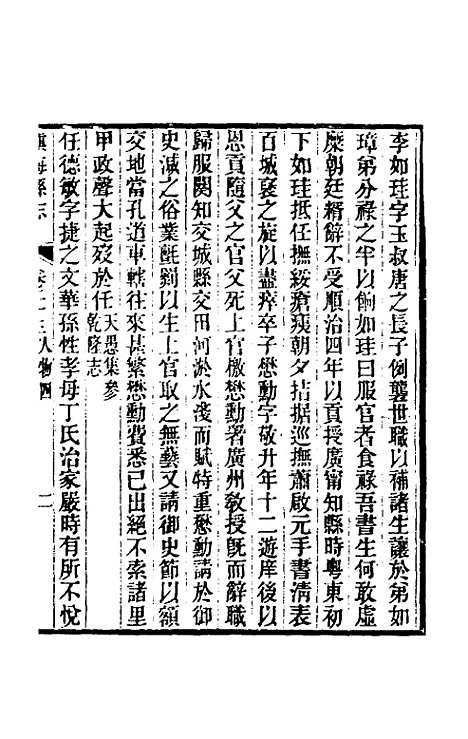 李如珪字玉叔唐之長子例襲世職以補諸生讓於弟如
璋弟分祿之半以餉如珪曰服官者食祿吾書生何敢虛
糜朝廷糈辭不受順治四年以貢授廣甯知縣時粵東初
下如珪抵任撫綏瘡殘朝夕拮据巡撫蕭啟元手書清表
百城襃之旋以盡瘁卒子懋勳字敬升年十二遊庠後以
恩貢隨父之官父死上官檄懋勳署廣州敎授旣而辭職
歸服闋知交城縣交田河淤水淺而賦特重懋勳請於御
史減之俗業氈罽以生上官取之無藝又請御史節以額
交地當孔道車轄往來甚繁懋勳費悉已出絕不索諸里
甲政聲大起歿於任天愚集參乾隆志
任德敏字捷之文華孫性孝母丁氏治家嚴時有所不悅
鎮海縣志
卷二十三人物四
二